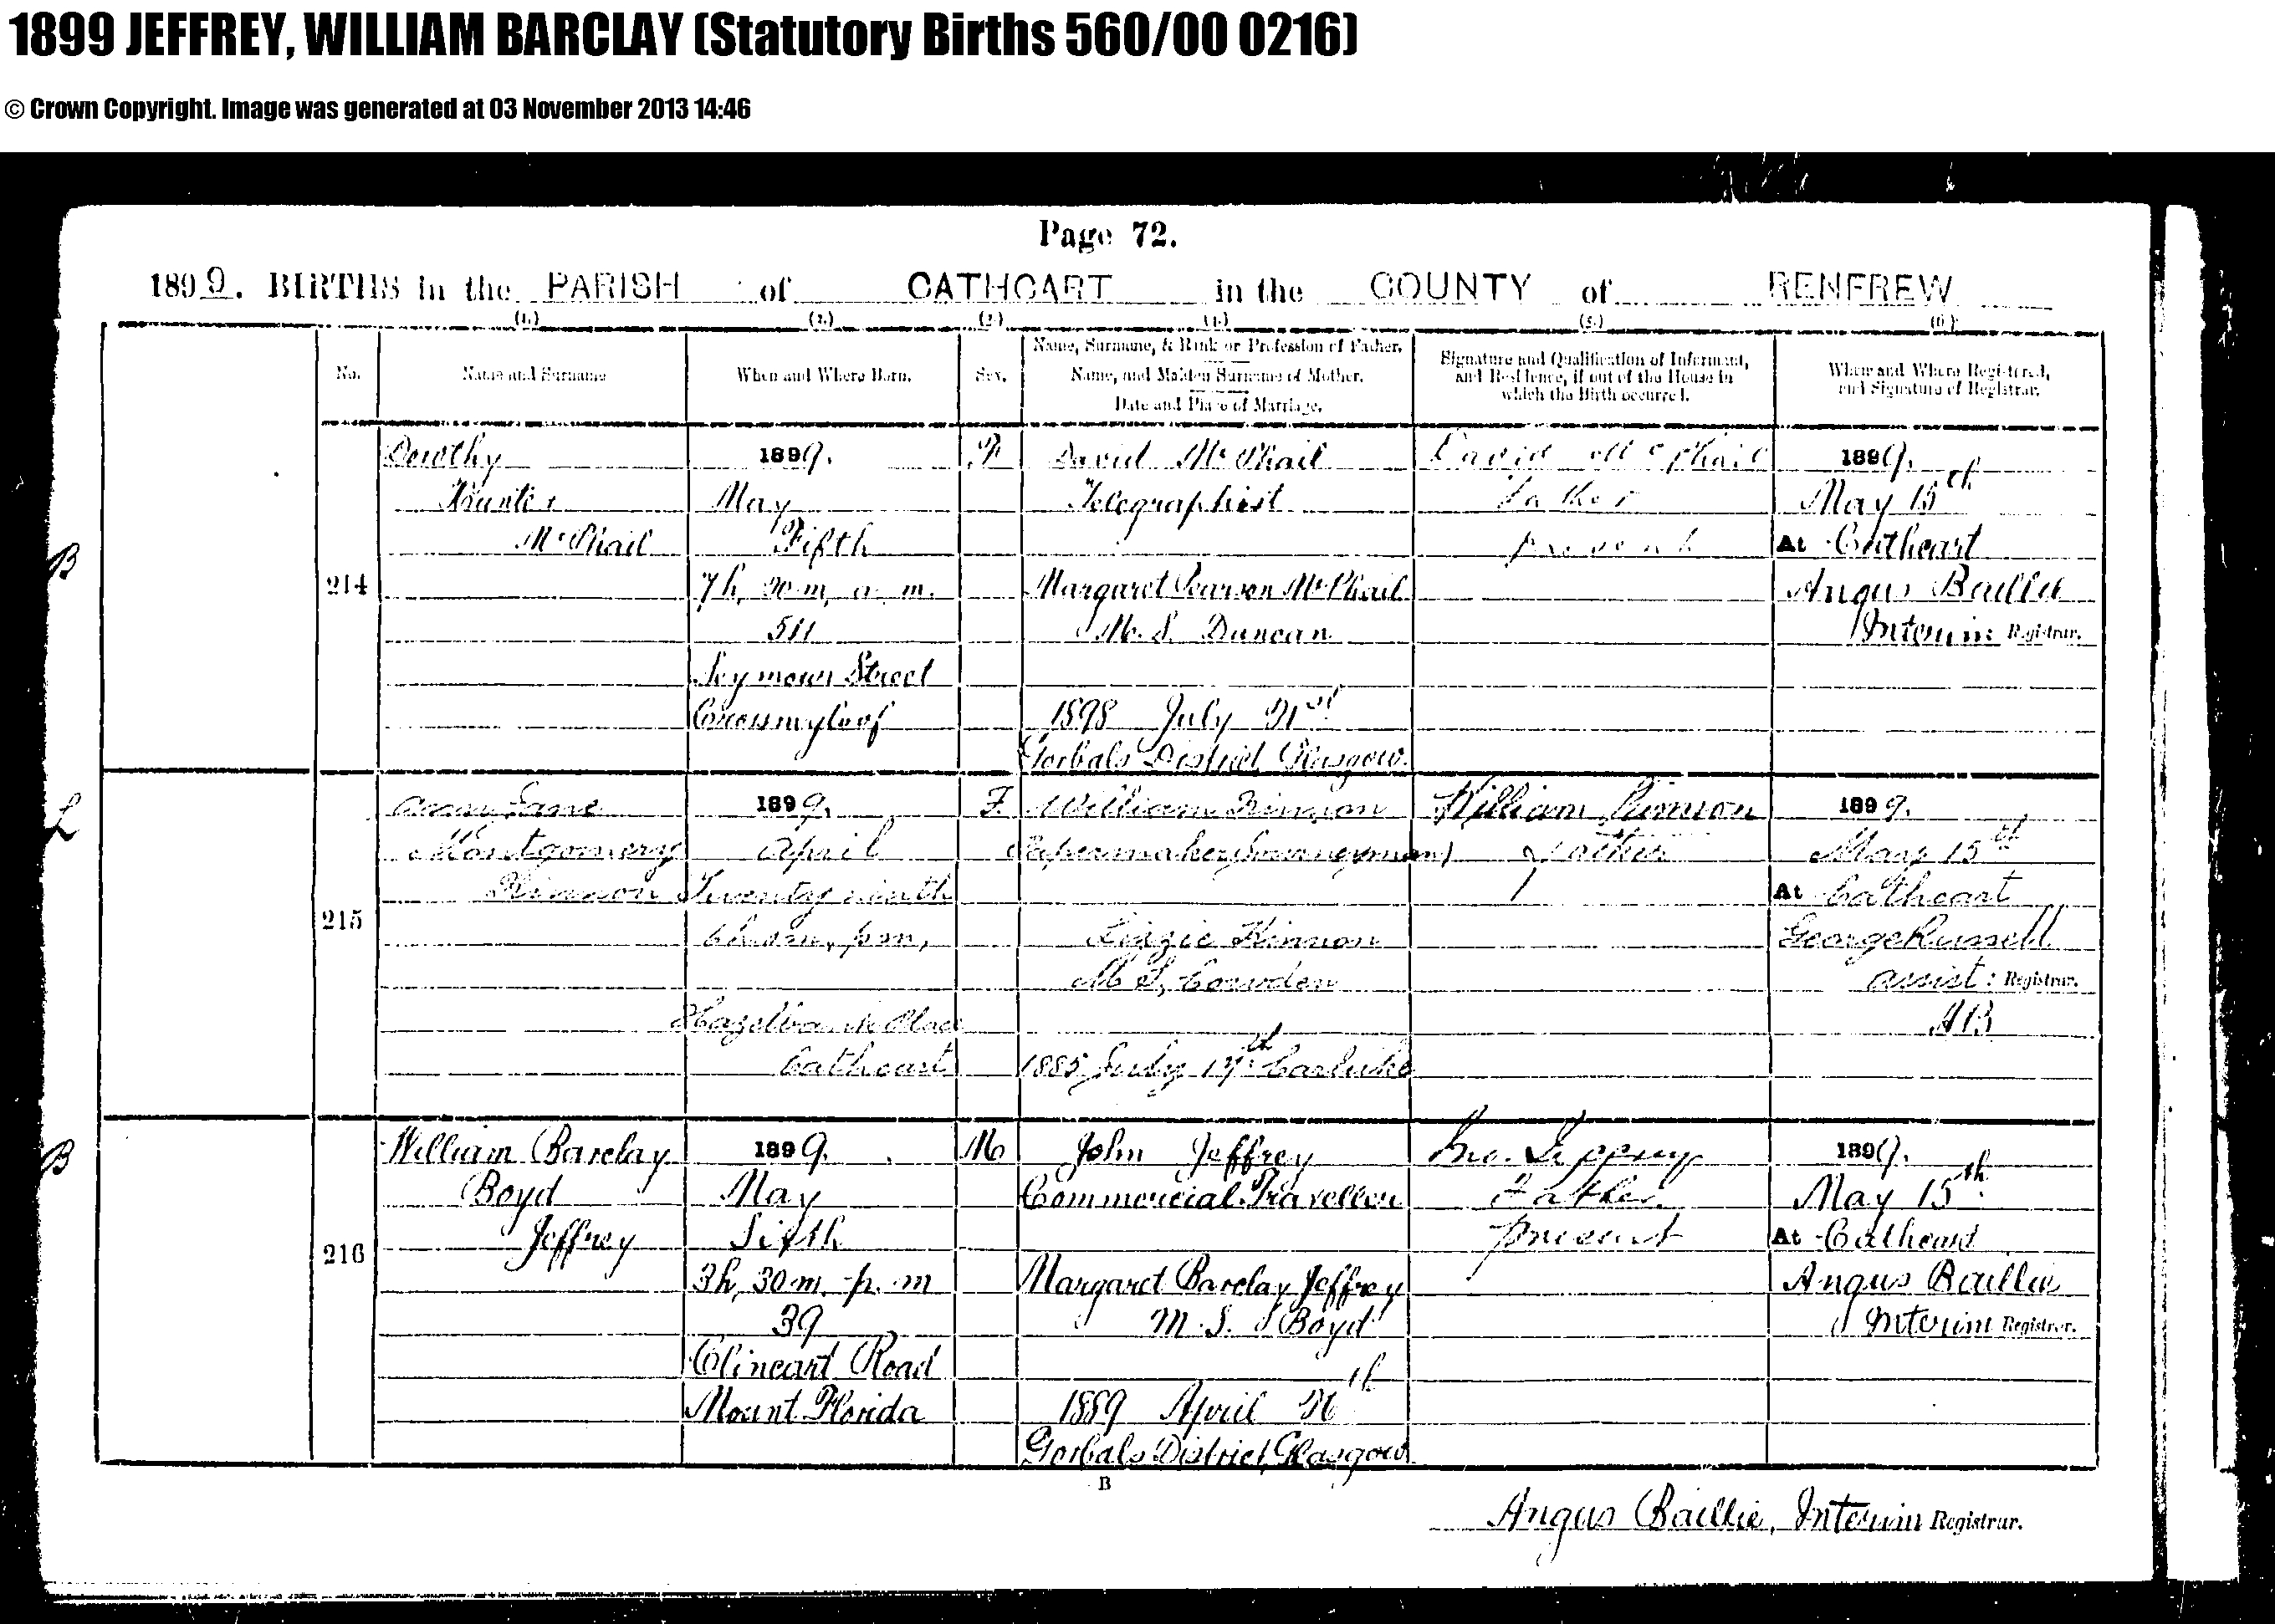 1899 JEFFREY, WILLIAM BARCLAY (Statutory Births 560/00 0216)
© Crown Copyright. Image was generated at 03 November 2013 14:46
Page 72.
1899. BIRTHS in the PARISH of CATHCART in the COUNTY of RENFREW
(1.) (2.) (3.) (4.) (5.) (6.)
No.
Name and Surname
When and Where Born.
Sex.
Name, Surname, & Rank or Profession of Father.
Name, and Maiden Surname of Mother.
Date and Place of Marriage.
Signature and Qualification of Informant,
and Residence, if out of the House in
which the Birth occurred.
When and Where Registered,
and Signature of Registrar.
B
214
Dorothy
Hunter
McPhail
1899.
May
Fifth
7h. m. a. m.
Seymour Street
Crossmyloof
F
David McPhail
Telegraphist
Margaret Pearson McPhail
M. S. Duncan
1898 July 21st
Gorbals District, Glasgow.
David McPhail
Father
present
1899.
May 15th
At Cathcart
Angus Baillie
Interim Registrar.
L
215
Jane
Montgomery
Kinnon
1899.
April
Twenty ninth
p.m.
Hazelbank Place
Cathcart
F.
William Kinnon
Papermaker (Journeyman)
Lizzie Kinnon
M S. Cowden
1885 July 17th Carluke
William Kinnon
Father
1899.
May 15th
At Cathcart
George Russell
assist: Registrar.
AB
B
216
William Barclay
Boyd
Jeffrey
1899.
May
Sixth
3h. 30m. p. m
39
Clincart Road
Mount Florida
M
John Jeffrey
Commercial Traveller
Margaret Barclay Jeffrey
M. S. Boyd
1889 April 26th
Gorbals District, Glasgow.
Jno. Jeffrey
Father
present
1899.
May 15th
At Cathcart
Angus Baillie
Interim Registrar.
B
Angus Baillie, Interim Registrar.